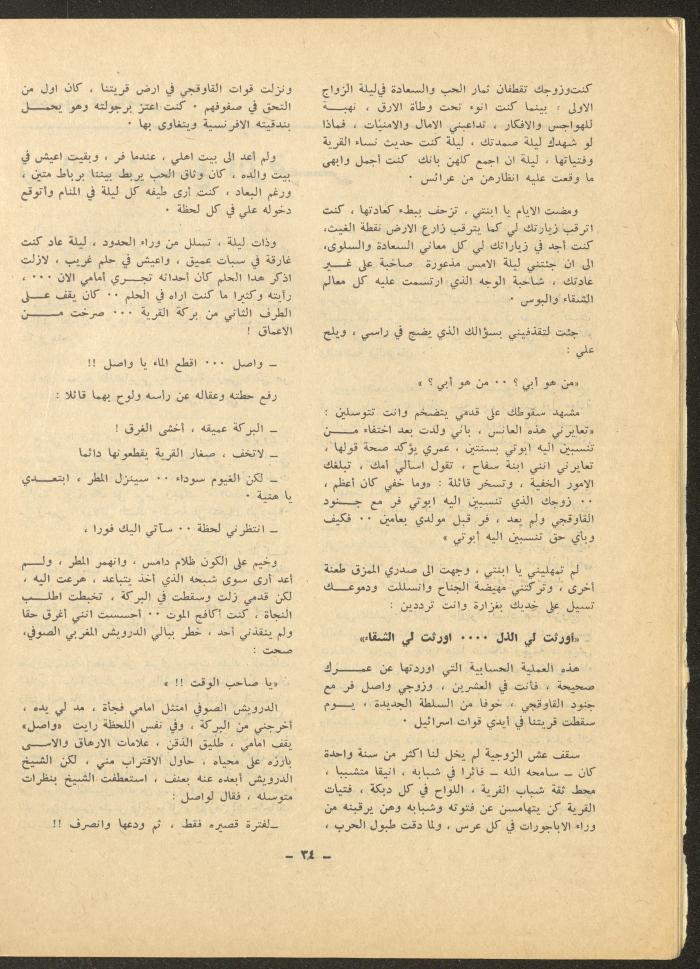 كنت وزوجك تقطفان ثمار الحب والسعادة في ليلة الزواج
الاولى : بينما كنت انوء تحت وطأة الارق ، نهبـة
للهواجس والافكار ، تداعبني الامال والامنيّات ، فماذا
لو شهدك ليلة صمدتك ، ليلة كنت حديث نساء القرية
وفتياتها ، ليلة ان اجمع كلهن بانك كنت أجمل وابهى
ما وقعت عليه انظارهن من عرائس .
ومضت الايام يا ابنتي ، تزحف ببطء كعادتها ، كنت
اترقب زيارتك لي كما يترقب زارع الارض نقطة الغيث،
كنت أجد في زياراتك لي كل معاني السعادة والسلوى،
الى ان جئتني ليلة الامس مذعورة صاخبة على غــير
عادتك ، شاحبة الوجه الذي ارتسمت عليه كل معالم
الشقاء والبوس .
جئت لتقذفيني بسؤالك الذي يضج في راسي ، ويلح
علي :
«من هو أبي ؟ ٠٠ من هو أبي ؟ »
مشهد سقوطك على قدمي يتضخم وانت تتوسلين :
«تعايرني هذه العانس ، باني ولدت بعد اختفاء مـــن
تنسبين اليه ابوتي بسنتين ، عمري يؤكد صحة قولها ،
تعايرني انني ابنة سفاح ، تقول اسألي أمك ، تبلغك
الامور الخفية ، وتسخر قائلة : «وما خفي كان أعظم ،
٠٠ زوجك الذي تنسبين اليه ابوتي فر مع جنــود
القاوقجي ولم يعد ، فر قبل مولدي بعامين ٠٠ فكيف
وبأي حق تنسبين اليه أبوتي »
لم تمهليني يا ابنتي ، وجهت الى صدري الممزق طعنة
أخرى ، وتركتني مهيضة الجناح وانسللت ودموعــك
تسيل على خديك بغزارة وانت ترددين :
«أورثت لي الذل ٠٠٠٠ اورثت لي الشقاء»
هذه العملية الحسابية التي اوردتها عن عمــرك
صحيحة ، فأنت في العشرين ، وزوجي واصل فر مع
جنود القاوقجي ، خوفا من السلطة الجديدة ، يــوم
سقطت قريتنا في أيدي قوات اسرائيل .
سقف عش الزوجية لم يخل لنا اكثر من سنة واحدة
كان ــ سامحه الله ــ فائرا في شبابه ، انيقا متشببا ،
محط ثقة شباب القرية ، اللواح في كل دبكة ، فتيات
القرية كن يتهامسن عن فتوته وشبابه وهن يرقبنه من
وراء الاباجورات في كل عرس ، ولما دقت طبول الحرب ،
ونزلت قوات القاوقجي في ارض قريتنا ، كان اول من
التحق في صفوفهم . كنت اعتز برجولته وهو يحمــل
بندقيته الافرنسية ويتغاوى بها .
ولم أعد الى بيت اهلي ، عندما فر ، وبقيت اعيش في
بيت والده ، كان وثاق الحب يربط بيننا برباط متين ،
ورغم البعاد ، كنت أرى طيفه كل ليلة في المنام وأتوقع
دخوله علي في كل لحظة .
وذات ليلة ، تسلل من وراء الحدود ، ليلة عاد كنت
غارقة في سبات عميق ، واعيش في حلم غريب ، لازلت
اذكر هدا الحلم كان أحداثه تجـري أمامي الان ٠٠٠ ،
رأيته وكثيرا ما كنت اراه في الحلم ٠٠ كان يقف علــى
الطرف الثاني من بركة القرية ٠٠٠ صرخت مــــن
الاعماق !
ــ واصل ٠٠٠ اقطع الماء يا واصل !!
رفع حطته وعقاله عن رأسه ولوح بهما قائلا :
ــ البركة عميقه ، أخشى الغرق !
ــ لاتخف ، صغار القرية يقطعونها دائما
ــ لكن الغيوم سوداء ٠٠ سينزل المطر ، ابتعــدي
يا هنية .
ــ انتظرني لحظة ٠٠ سآتي اليك فورا ،
وخيم على الكون ظلام دامس ، وانهمر المطر ، ولــم
أعد أرى سوى شبحه الذي أخذ يتباعد ، هرعت اليه ،
لكن قدمي زلت وسقطت في البركة ، تخبطت اطلــب
النجاة ، كنت أكافح الموت ٠٠ أحسست انني أغرق حقا
ولم ينقذني أحد ، خطر ببالي الدرويش المغربي الصوفي،
صحت :
«يا صاحب الوقت !! »
الدرويش الصوفي امتثل امامي فجأة ، مد لي يده ،
أخرجني من البركة ، وفي نفس اللحظة رايت «واصل»
يقف امامي ، طليق الذقن ، علامات الارهاق والاســى
بارزه على محياه ، حاول الاقتراب مني ، لكن الشيخ
الدرويش أبعده عنه بعنف ، استعطفت الشيخ بنظرات
متوسله ، فقال لواصل :
ــ لفترة قصيره فقط ، ثم ودعها وانصرف !!
ــ ٣٤ ــ